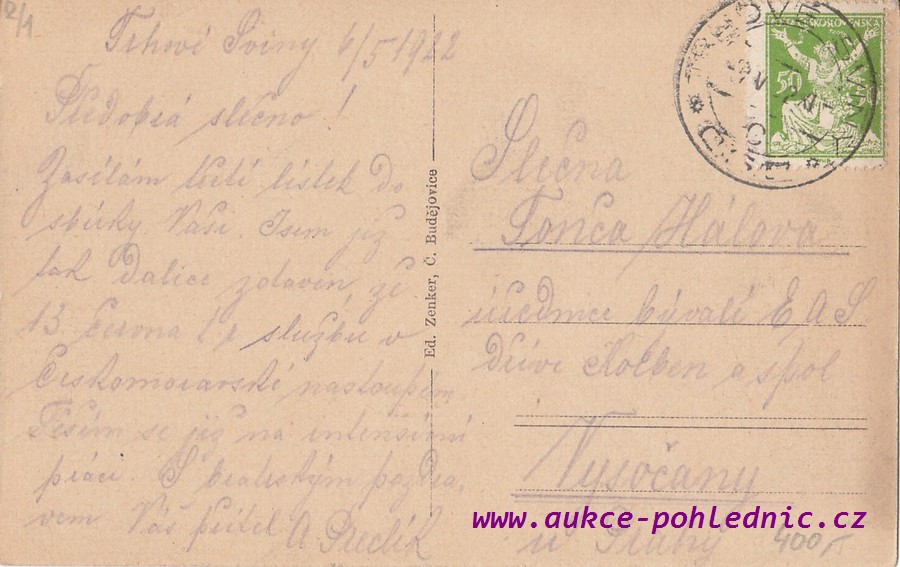 2/1
Trhové Sviny 6/5 1922
Předobrá slečno!
Zasílám třetí lístek do
sbírky Vaší. Jsem již
tak dalice zdaven, že
13. června t. r. službu v
Českomoravské nastoupím.
Těším se již na intensivní
práci. S bratrským pozdra-
vem Váš přítel A
Ed. Zenker, Č. Budějovice
ČESKOSLOVENSKÁ
50
TRHOVÉ SVINY
Slečna
Tonča Hálova
úřednice bývalí E A S
dříve Kolben a spol
Vysočany
u Prahy
400,-
www.aukce-pohlednic.cz